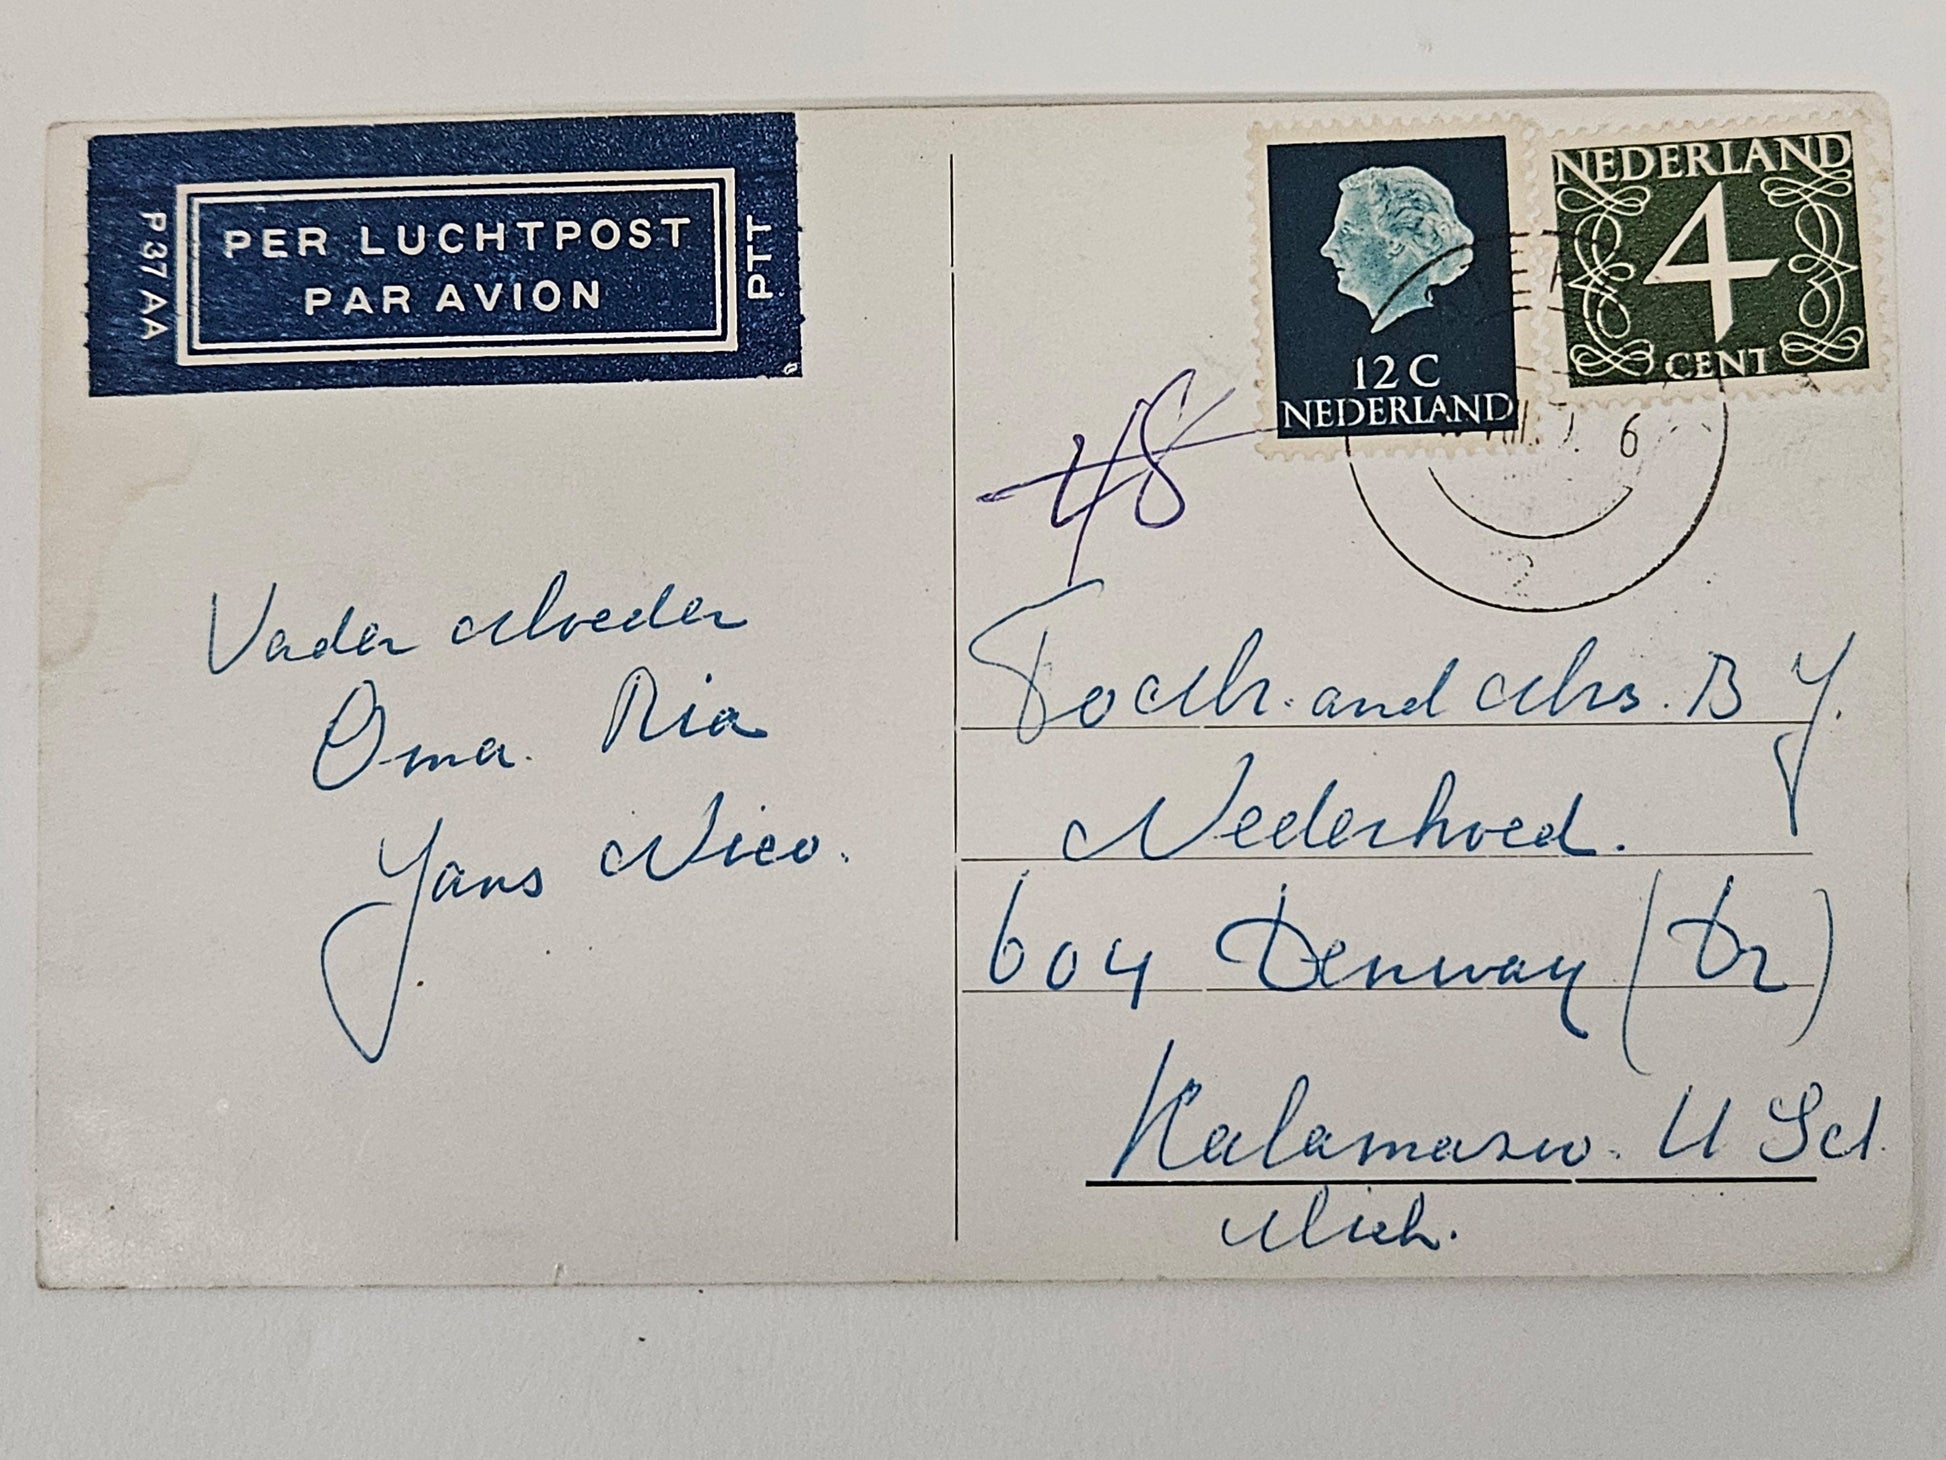 PER LUCHTPOST
PAR AVION
P 37 AA
PTT
12 C
NEDERLAND
NEDERLAND
4
CENT
6
2
48
Vader Moeder
Oma. Ria
Jans Nico.
To Mr. and Mrs. B J.
Nederhoed.
604 Denway (Dr)
Kalamazoo. U S A.
Mich.